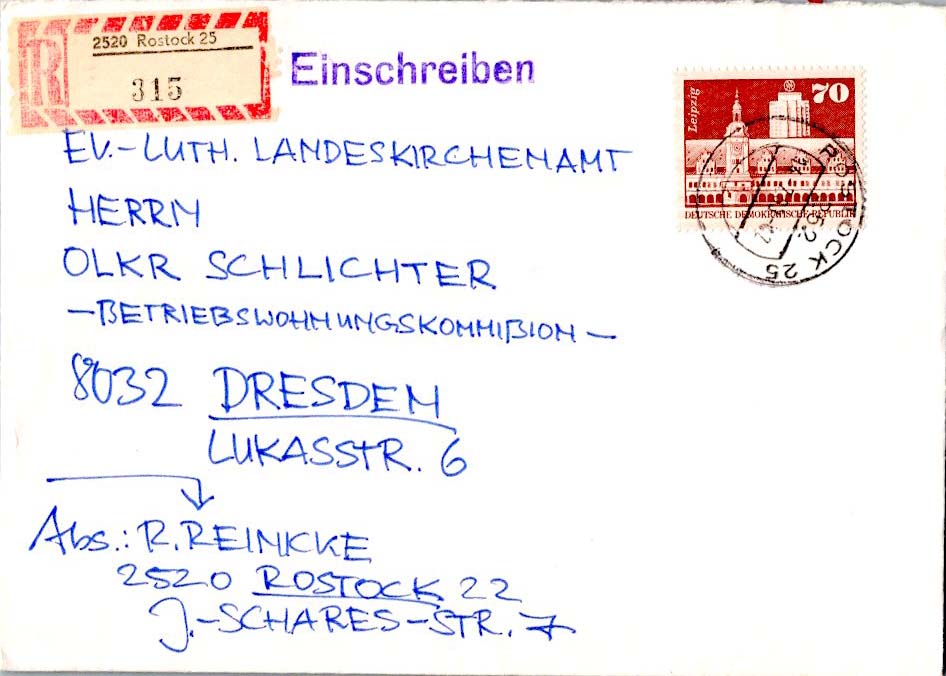 2520 Rostock 25
R
315
Einschreiben
Leipzig
70
DEUTSCHE DEMOKRATISCHE REPUBLIK
ROSTOCK 25
252
EV.-LUTH. LANDESKIRCHENAMT
HERRN
OLKR SCHLICHTER
-BETRIEBSWOHNUNGSKOMMIßION-
8032 DRESDEN
LUKASSTR. 6
Abs.: R. REINICKE
2520 ROSTOCK 22
J.-SCHARES-STR. 7